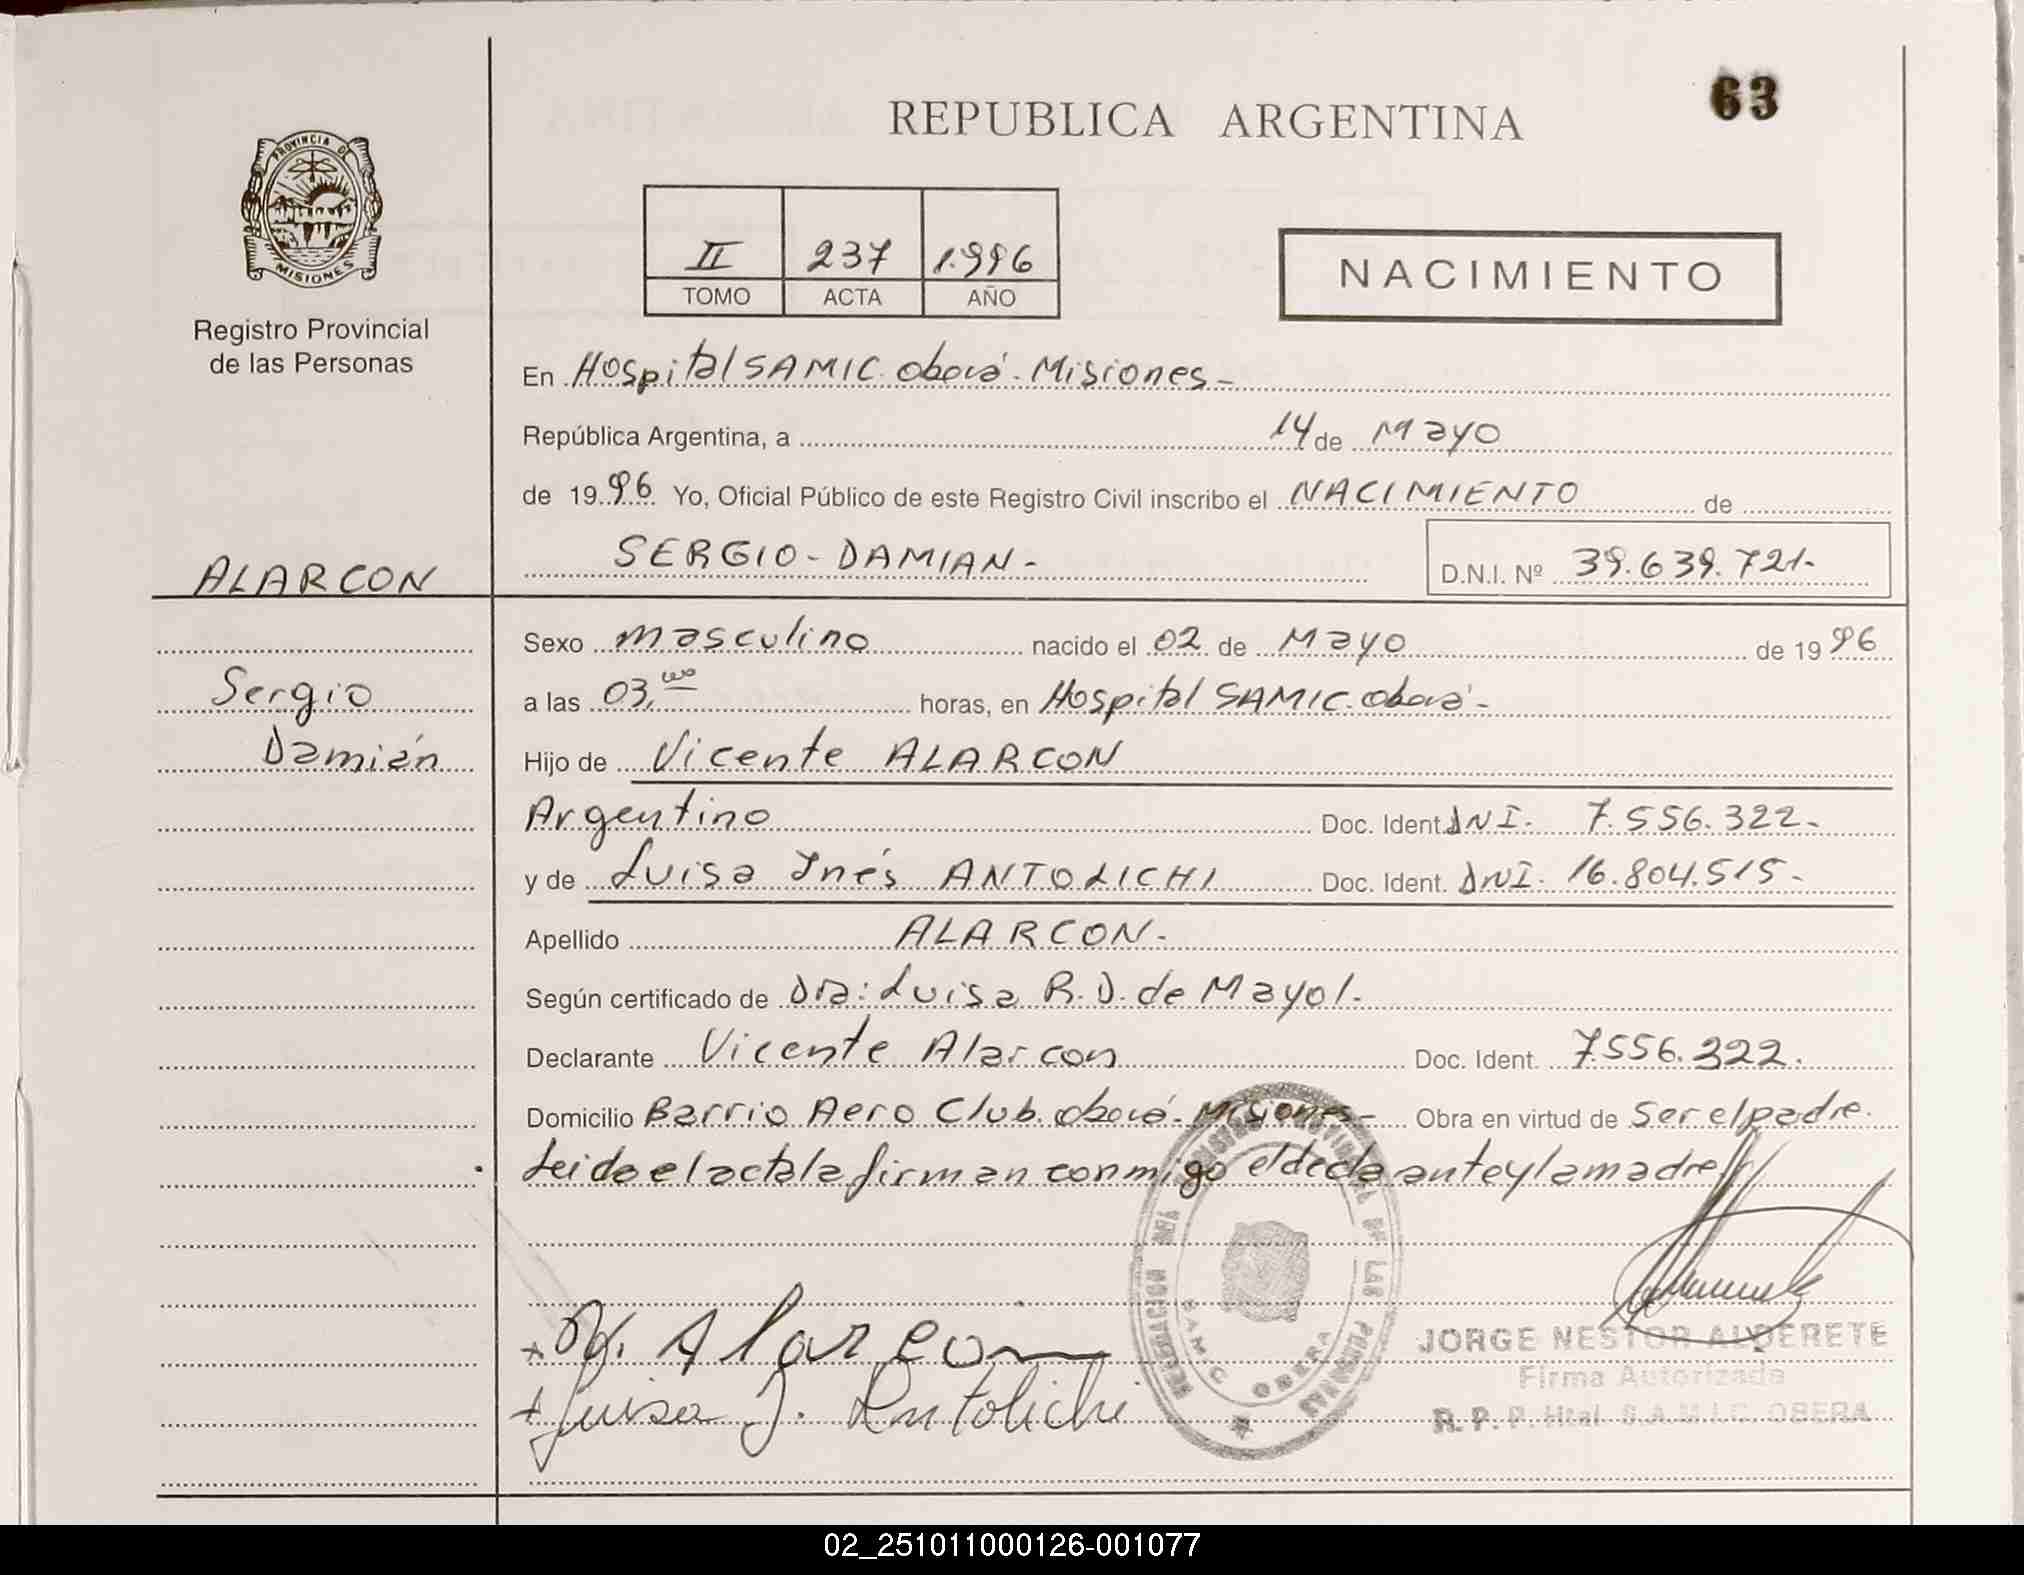 63
REPUBLICA ARGENTINA
PROVINCIA DE
MISIONES
Registro Provincial
de las Personas
II 237 1.996
TOMO ACTA AÑO
NACIMIENTO
En Hospital SAMIC. oberá - Misiones -
República Argentina, a 14 de Mayo
de 19 96 Yo, Oficial Público de este Registro Civil inscribo el NACIMIENTO de
ALARCON
SERGIO - DAMIAN - D.N.I. Nº 39.639.721.-
Sergio
Damián
Sexo masculino nacido el 02 de Mayo de 19 96
a las 03,00 horas, en Hospital SAMIC. oberá -
Hijo de Vicente ALARCON
Argentino Doc. Ident. DNI. 7.556.322.-
y de Luisa Inés ANTOLICHI Doc. Ident. DNI. 16.804.515.-
Apellido ALARCON.-
Según certificado de Dra: Luisa R. D. de Mayol.
Declarante Vicente Alarcon Doc. Ident. 7.556.322.
Domicilio Barrio Aero Club. oberá - Misiones - Obra en virtud de Ser el padre.
Leida el acta la firman conmigo el declarante y la madre
V. Alarcon
Luisa I. Antolichi
SAMIC OBERA
JORGE NESTOR ALDERETE
Firma Autorizada
R. P. P. Htal. S.A.M.I.C. OBERA
02_251011000126-001077